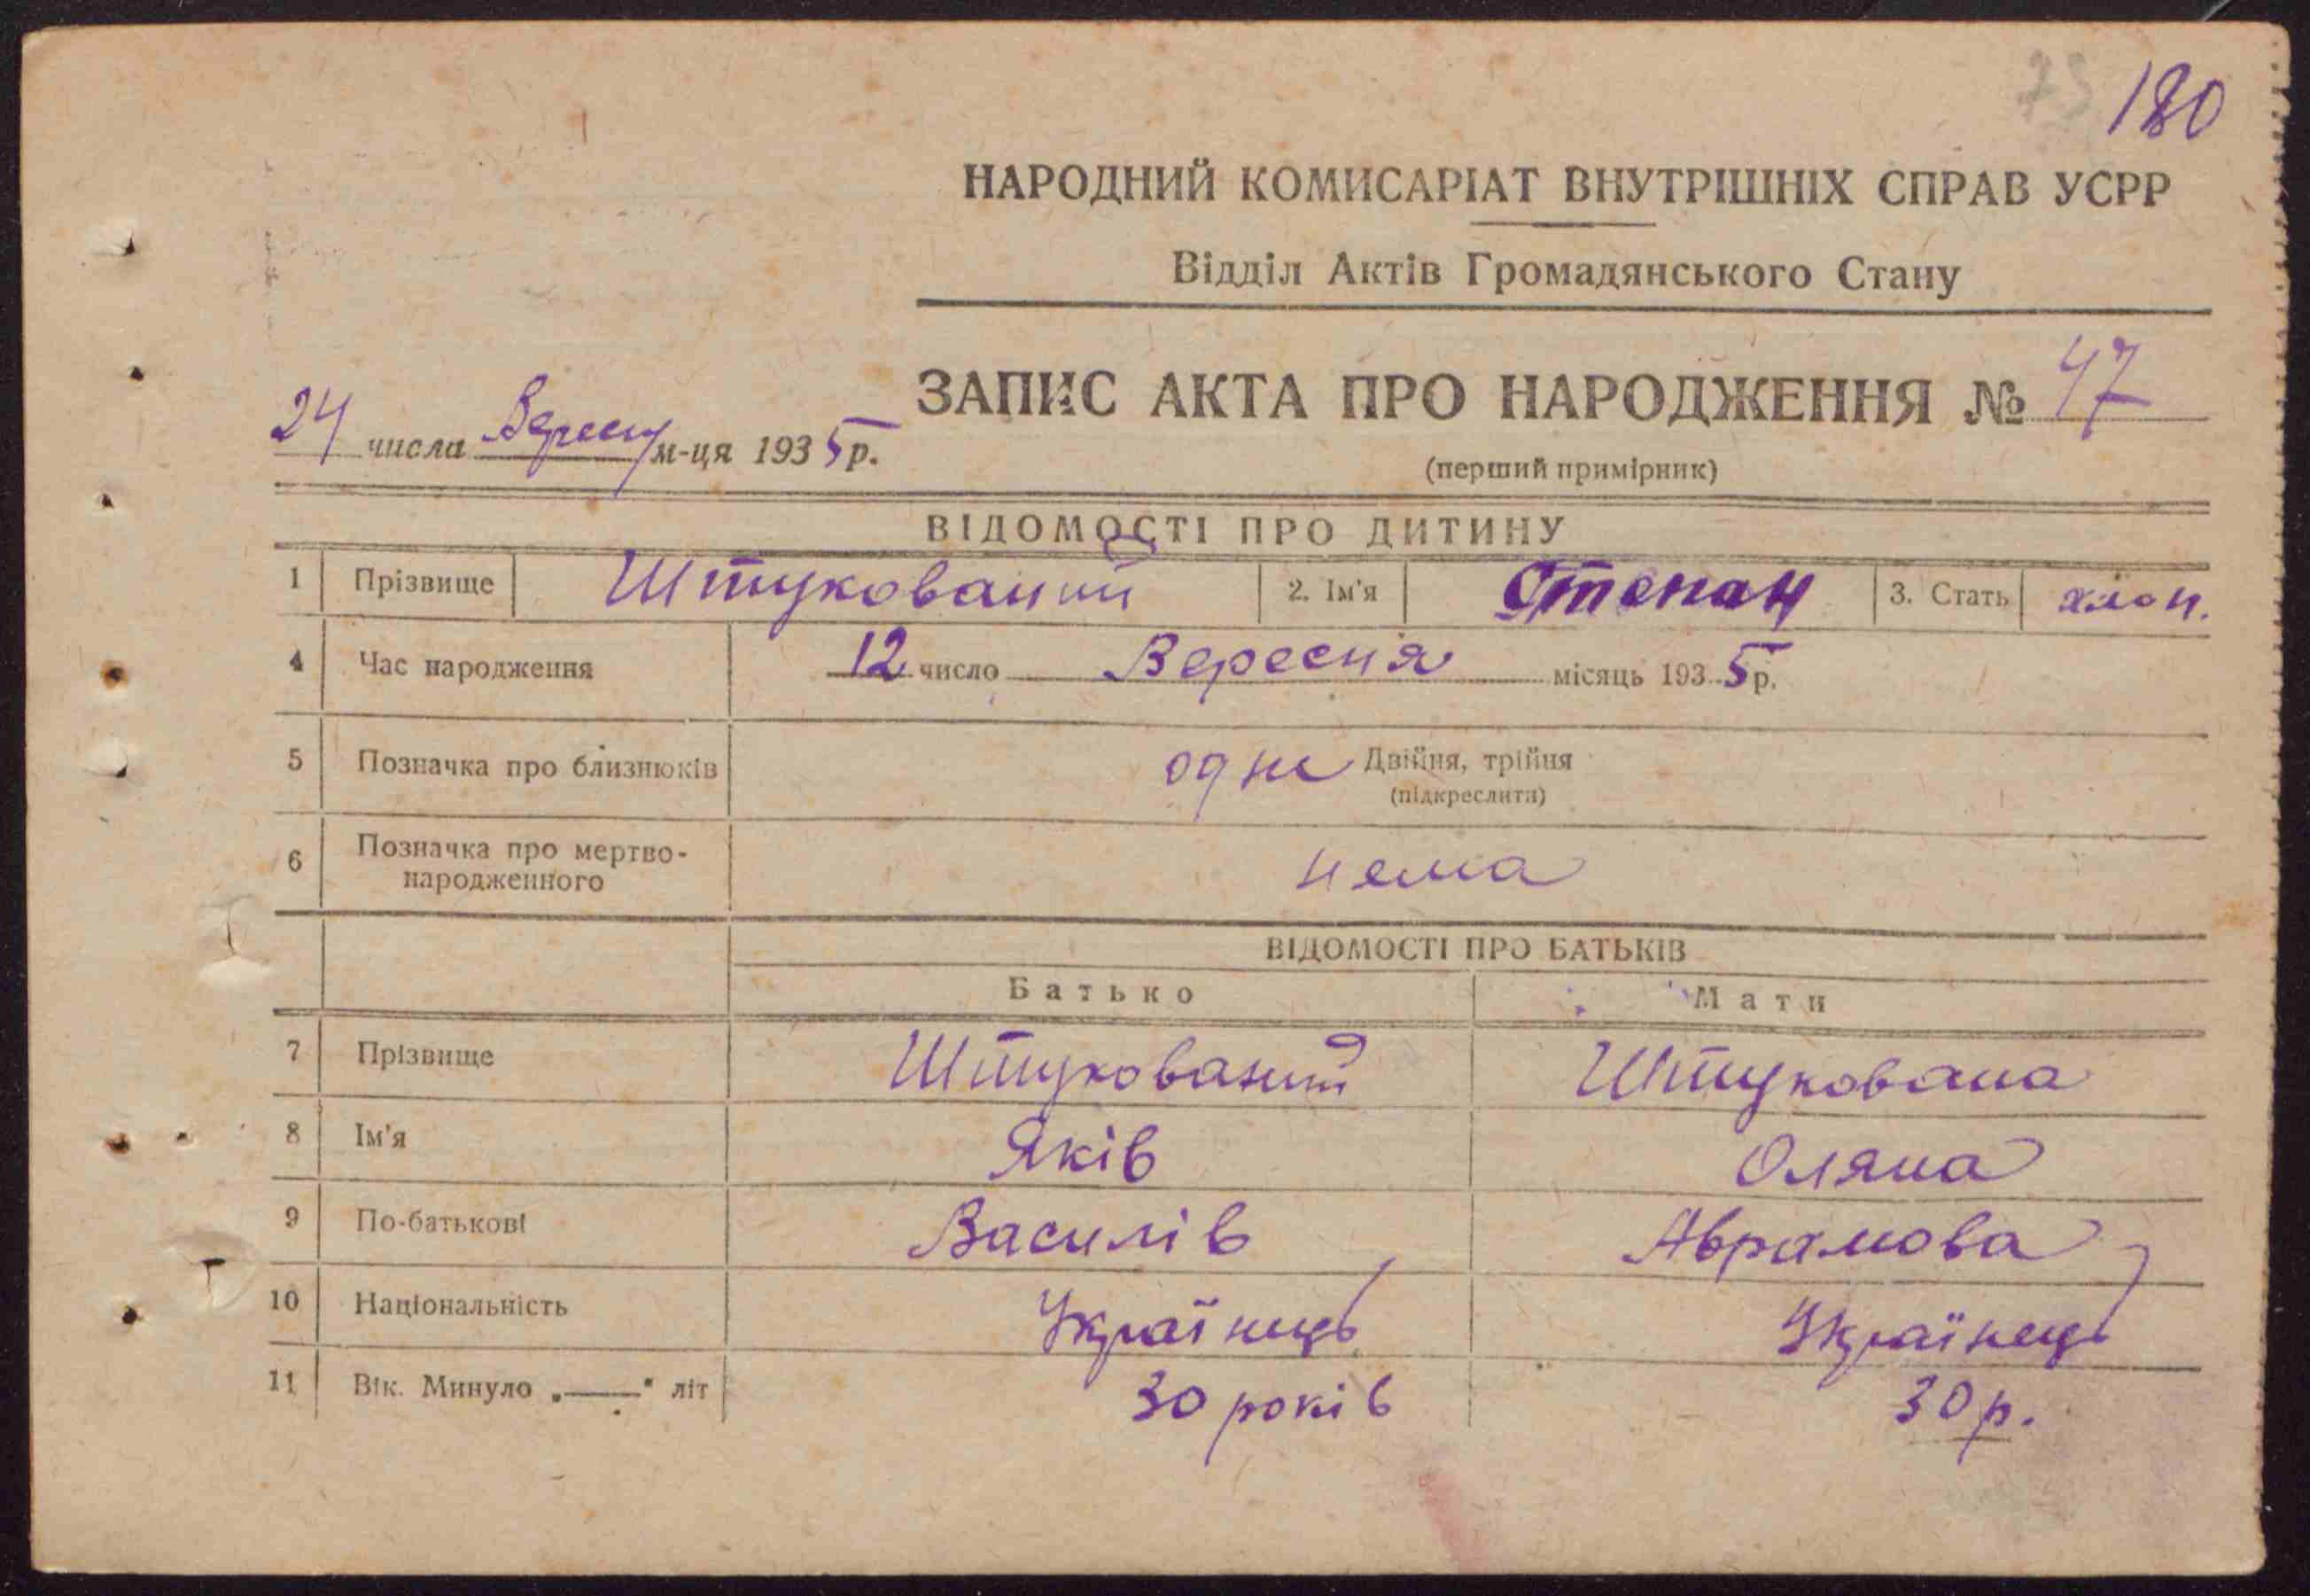 73 180
НАРОДНИЙ КОМИСАРІАТ ВНУТРІШНІХ СПРАВ УСРР
Відділ Актів Громадянського Стану
ЗАПИС АКТА ПРО НАРОДЖЕННЯ № 47
24 числа Вересня м-ця 1935 р.
(перший примірник)
ВІДОМОСТІ ПРО ДИТИНУ
1 Прізвище Штукований 2. Ім'я Степан 3. Стать хлоп.
4 Час народження 12 число Вересня місяць 1935 р.
5 Позначка про близнюків одне Двійня, трійня
(підкреслити)
6 Позначка про мертво-
народженного нема
ВІДОМОСТІ ПРО БАТЬКІВ
Батько Мати
7 Прізвище Штукований Штукована
8 Ім'я Яків Оляна
9 По-батькові Василів Аврамова
10 Національність Українець Українець
11 Вік. Минуло „——" літ 30 років 30 р.